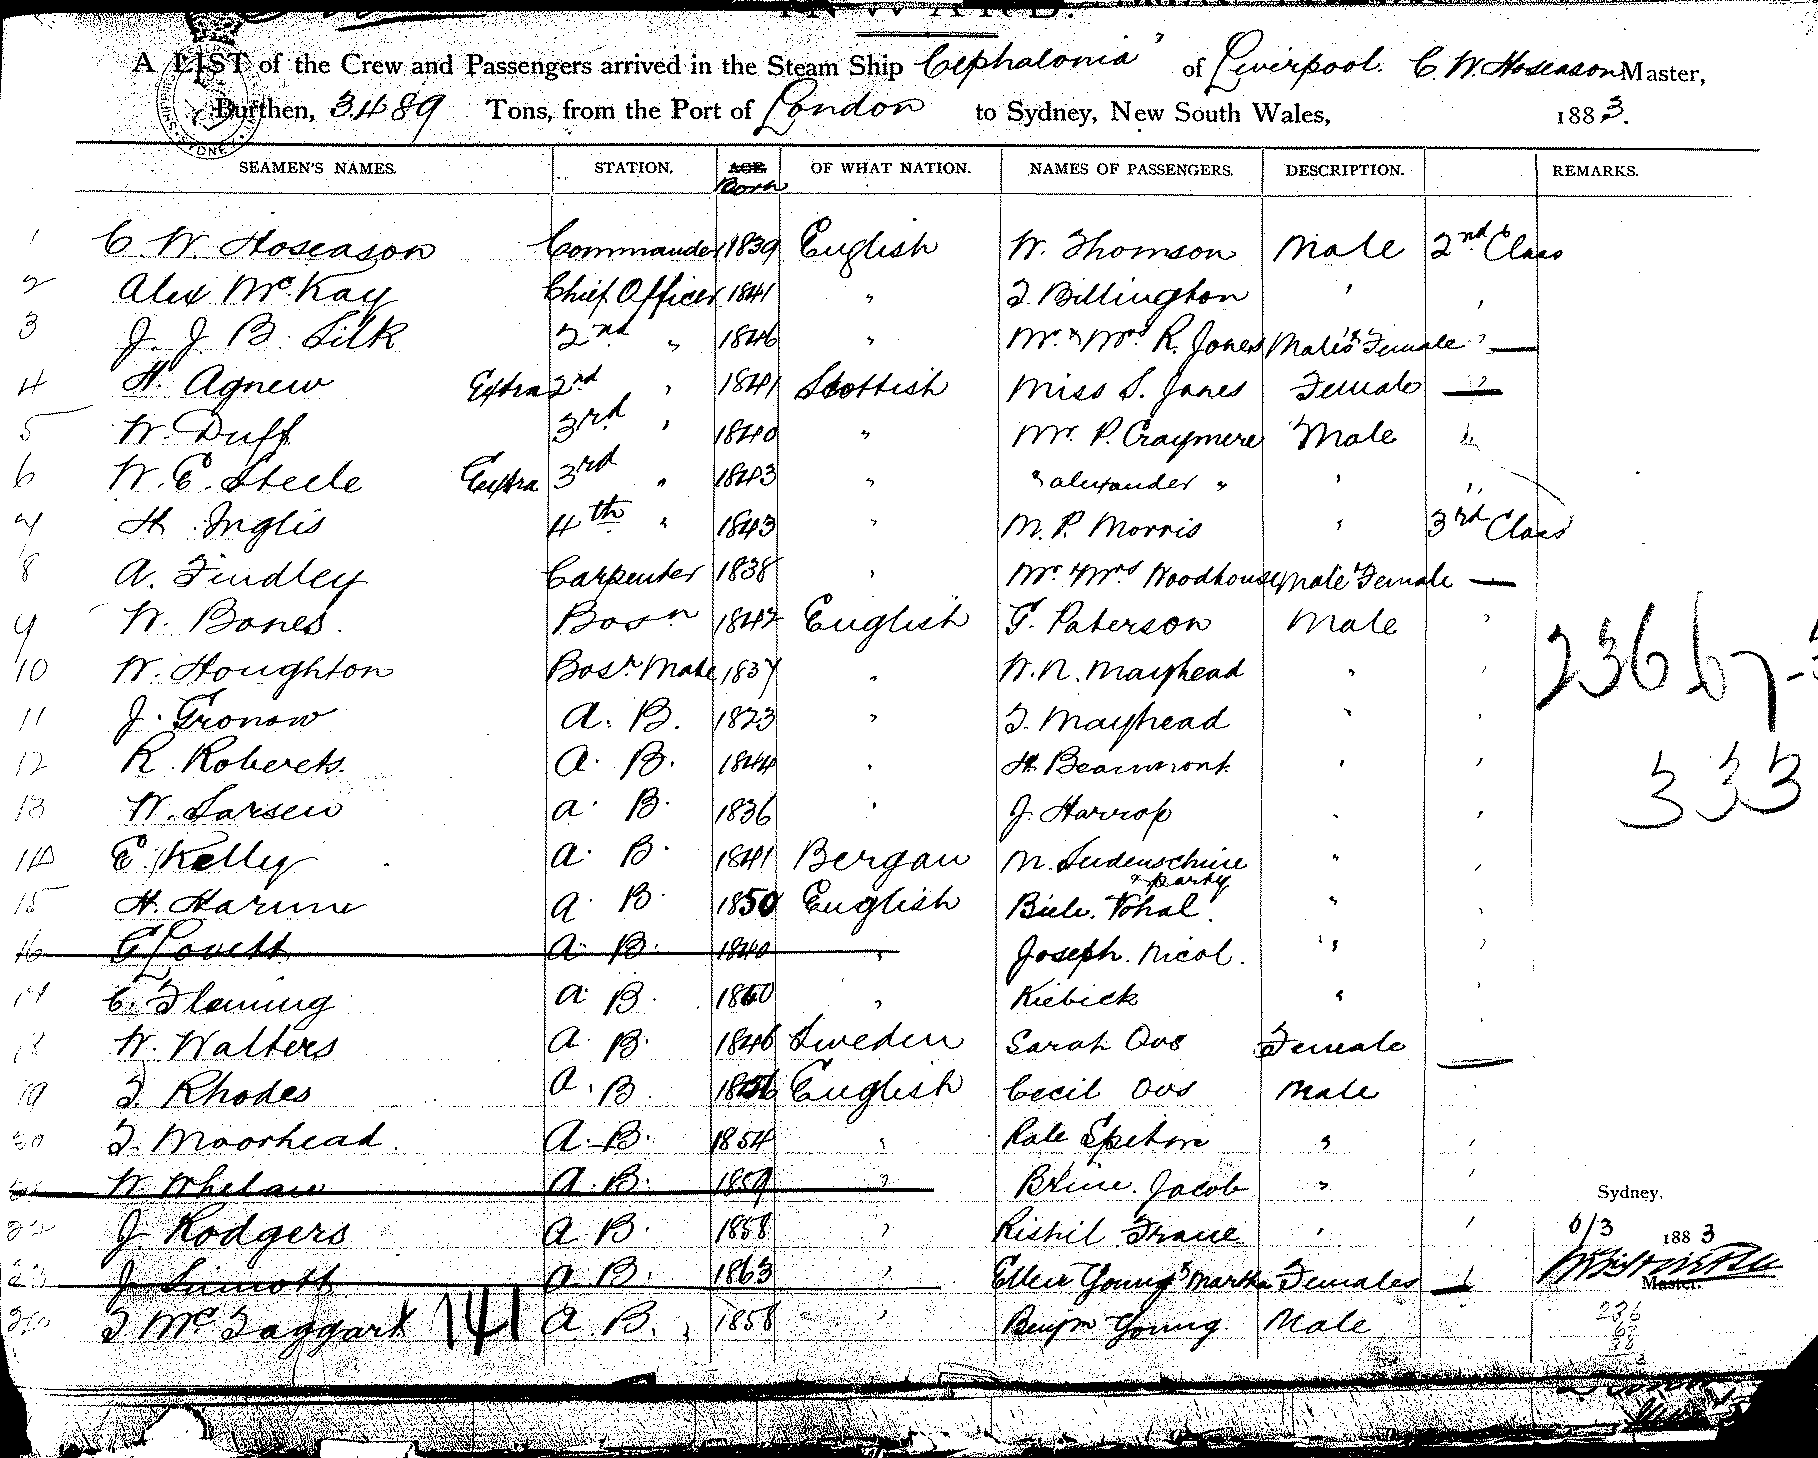 INWARD.
A LIST of the Crew and Passengers arrived in the Steam Ship "Cephalonia" of Liverpool. C. W. Hoseason Master,
Burthen, 3489 Tons, from the Port of London to Sydney, New South Wales, 1883.
SEAMEN'S NAMES. STATION. AGE. OF WHAT NATION. NAMES OF PASSENGERS. DESCRIPTION. REMARKS.
Born
1 C. W. Hoseason Commander 1839 English W. Thomson Male 2nd Class
2 Alex McKay Chief Officer 1841 " T Billington " "
3 J. J. B. Silk 2nd " 1846 " Mr. & Mrs. R. Jones Male & Female "
4 H. Agnew Extra 2nd " 1841 Scottish Miss S. Jones Female "
5 W. Duff 3rd " 1840 " Mr. P. Craymere Male "
6 W. E. Steele Extra 3rd " 1843 " " Alexander " " "
7 H. Inglis 4th " 1843 " M. P. Morris " 3rd Class
8 A. Findley Carpenter 1838 " Mr. & Mrs Woodhouse Male & Female
9 W. Bones. Bosn 1842 English G. Paterson Male "
10 W. Houghton Bosn Mate 1837 " W. N. Mayhead " "
11 J. Gronow A. B. 1823 " T. Mayhead " "
12 R. Roberts. A. B. 1844 " H. Beaumont. " "
13 W. Larsen A. B. 1836 " J. Harrop " "
14 E. Kelly A. B. 1841 Bergan M. " "
& party
15 H. A. B. 1850 English Vohal. " "
16 G Lovett A. B. 1840 " Joseph. Nicol. " "
17 C. Fleming A. B. 1860 " Kiebick " "
18 W. Walters A. B. 1846 Sweden Sarah Ovs Female
19 T. Rhodes A. B. English Cecil Ovs Male "
20 T. Moorhead. A. B. 1854 " Kate " "
21 W Whelan A. B. 1859 " Jacob " "
22 J. Rodgers A B. 1858 " " "
23 J Sinnott A B. 1863 " Ellen Young & Martha Females
24 T McTaggart 141 A B. 1858 " Benjm Young Male
23667-3
333
Sydney,
6/3 1883
Master.
236